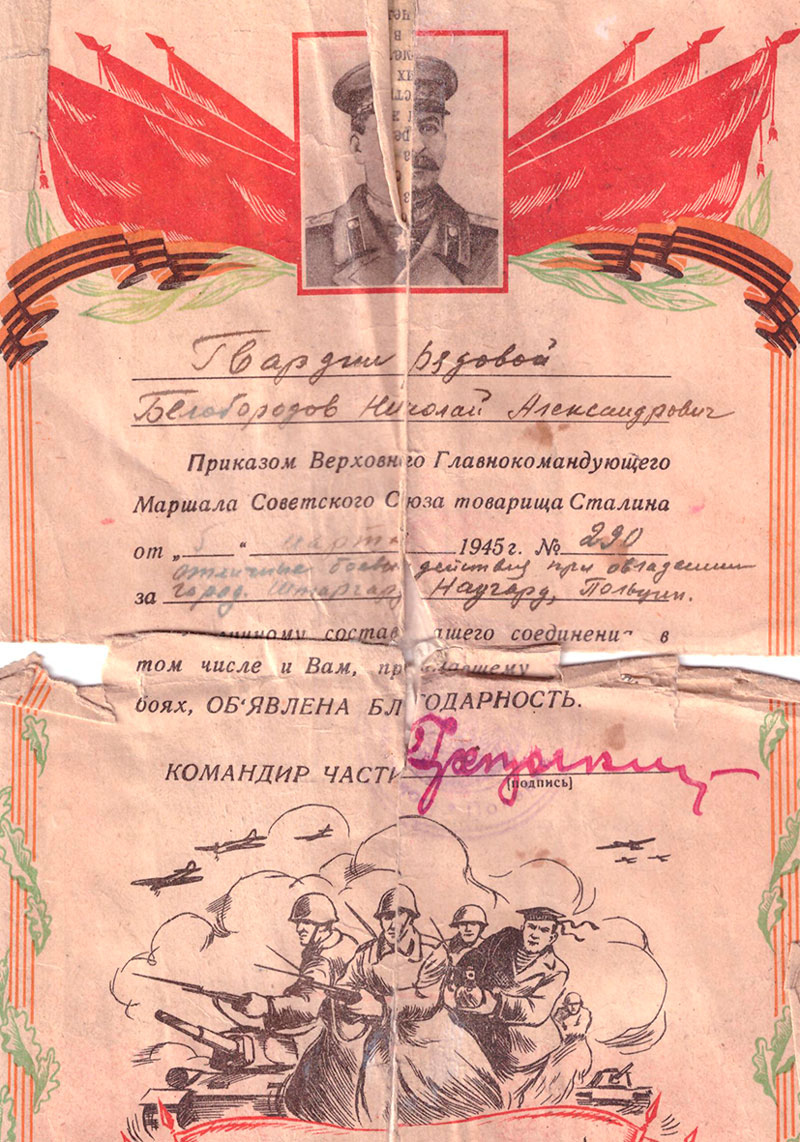 Гвардии рядовой
Белобородов Николай Александрович
Приказом Верховного Главнокомандующего
Маршала Советского Союза товарища Сталина
от „5“ марта 1945 г. № 290
отличные боевые действия при овладении
за город. Штаргард, Наугард, Польцин.
составу вашего соединения в
том числе и Вам,
боях, ОБ‘ЯВЛЕНА БЛАГОДАРНОСТЬ.
КОМАНДИР ЧАСТИ
[подпись]